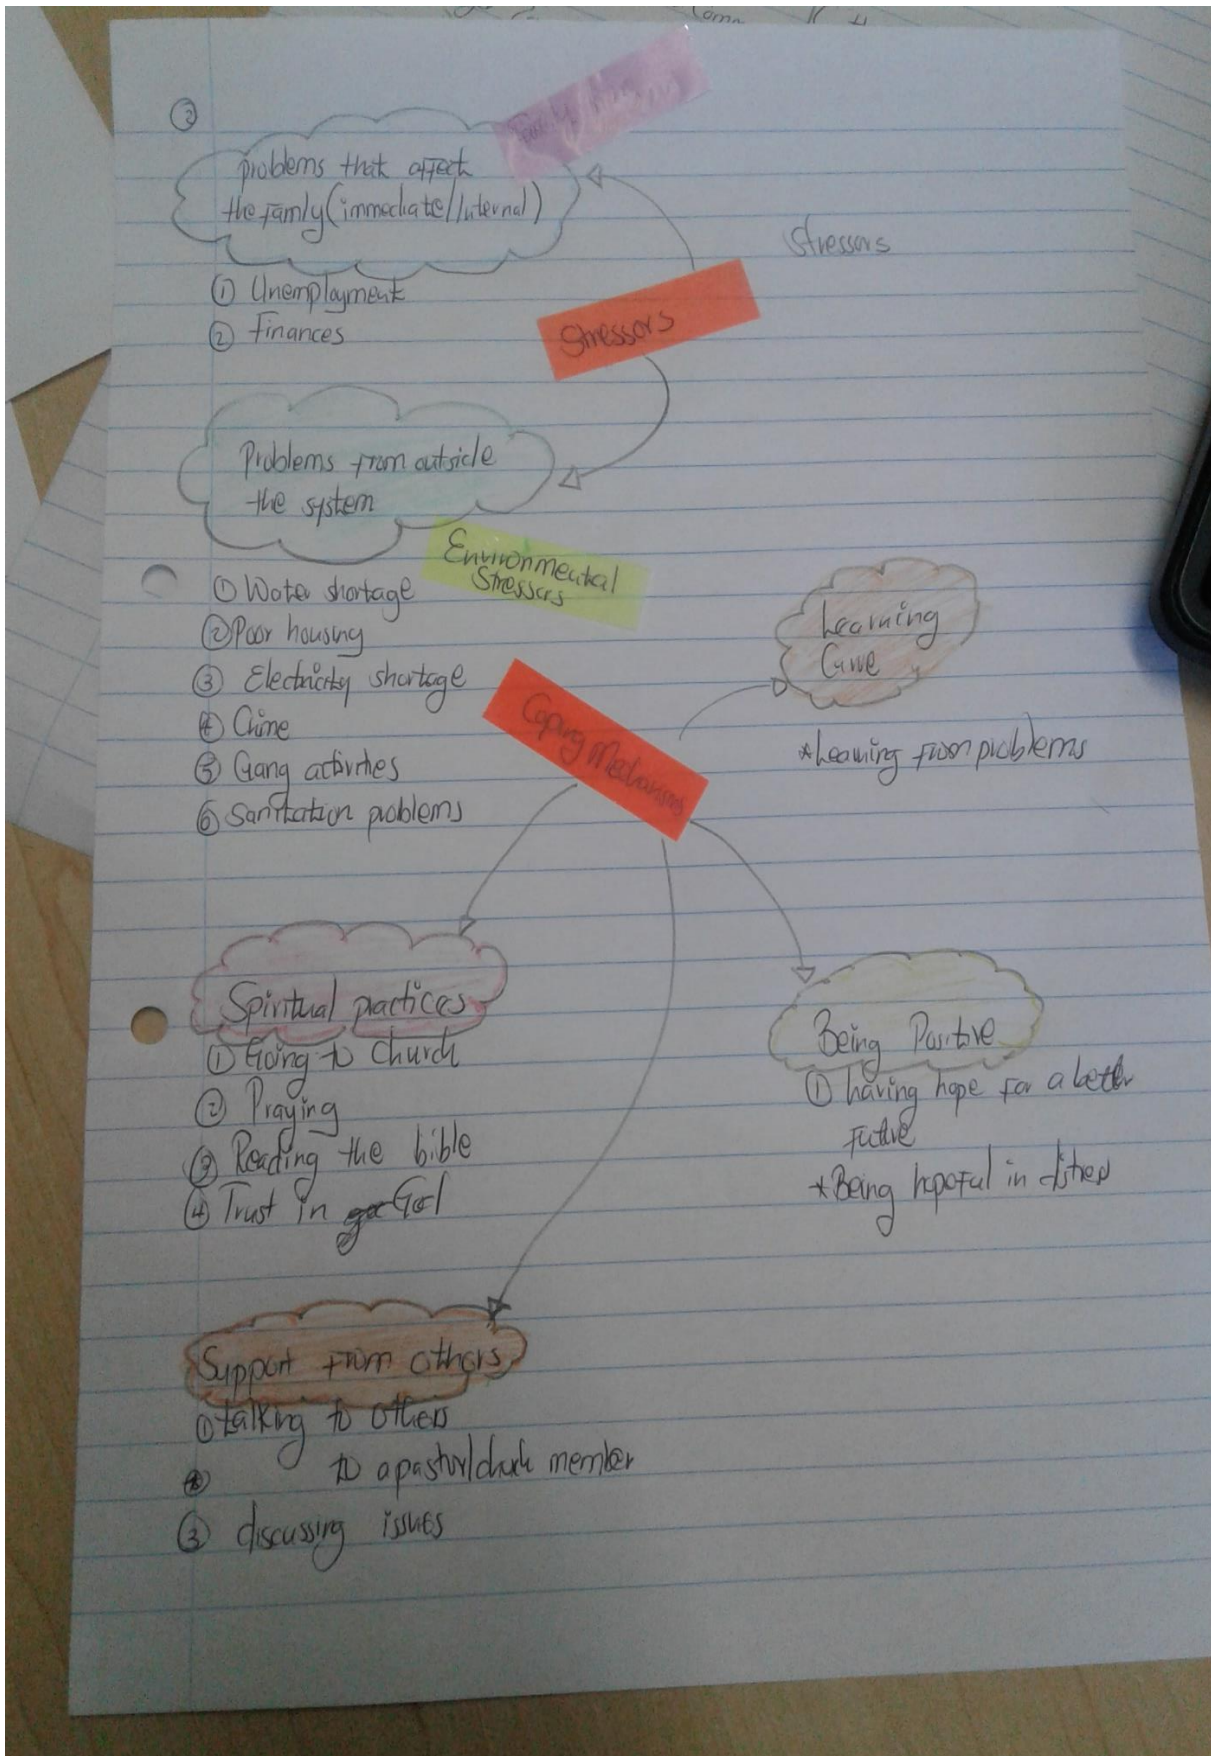 ②
problems that affect
the family (immediate/Internal)
① Unemployment
② Finances
Stressors
Stressors
Problems from outside
the system
Environmental
Stressors
① Water shortage
② Poor housing
③ Electricity shortage
④ Crime
⑤ Gang activities
⑥ Sanitation problems
Coping Mechanisms
Learning
Curve
*Learning from problems
Spiritual practices
① Going to church
② Praying
③ Reading the bible
④ Trust in God
Being Positive
① having hope for a better
future
*Being hopeful in
Support from others
① talking to others
to a pastor/church member
③ discussing issues